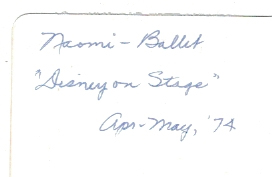 Naomi - Ballet
"Disney on Stage"
Apr-May, '74